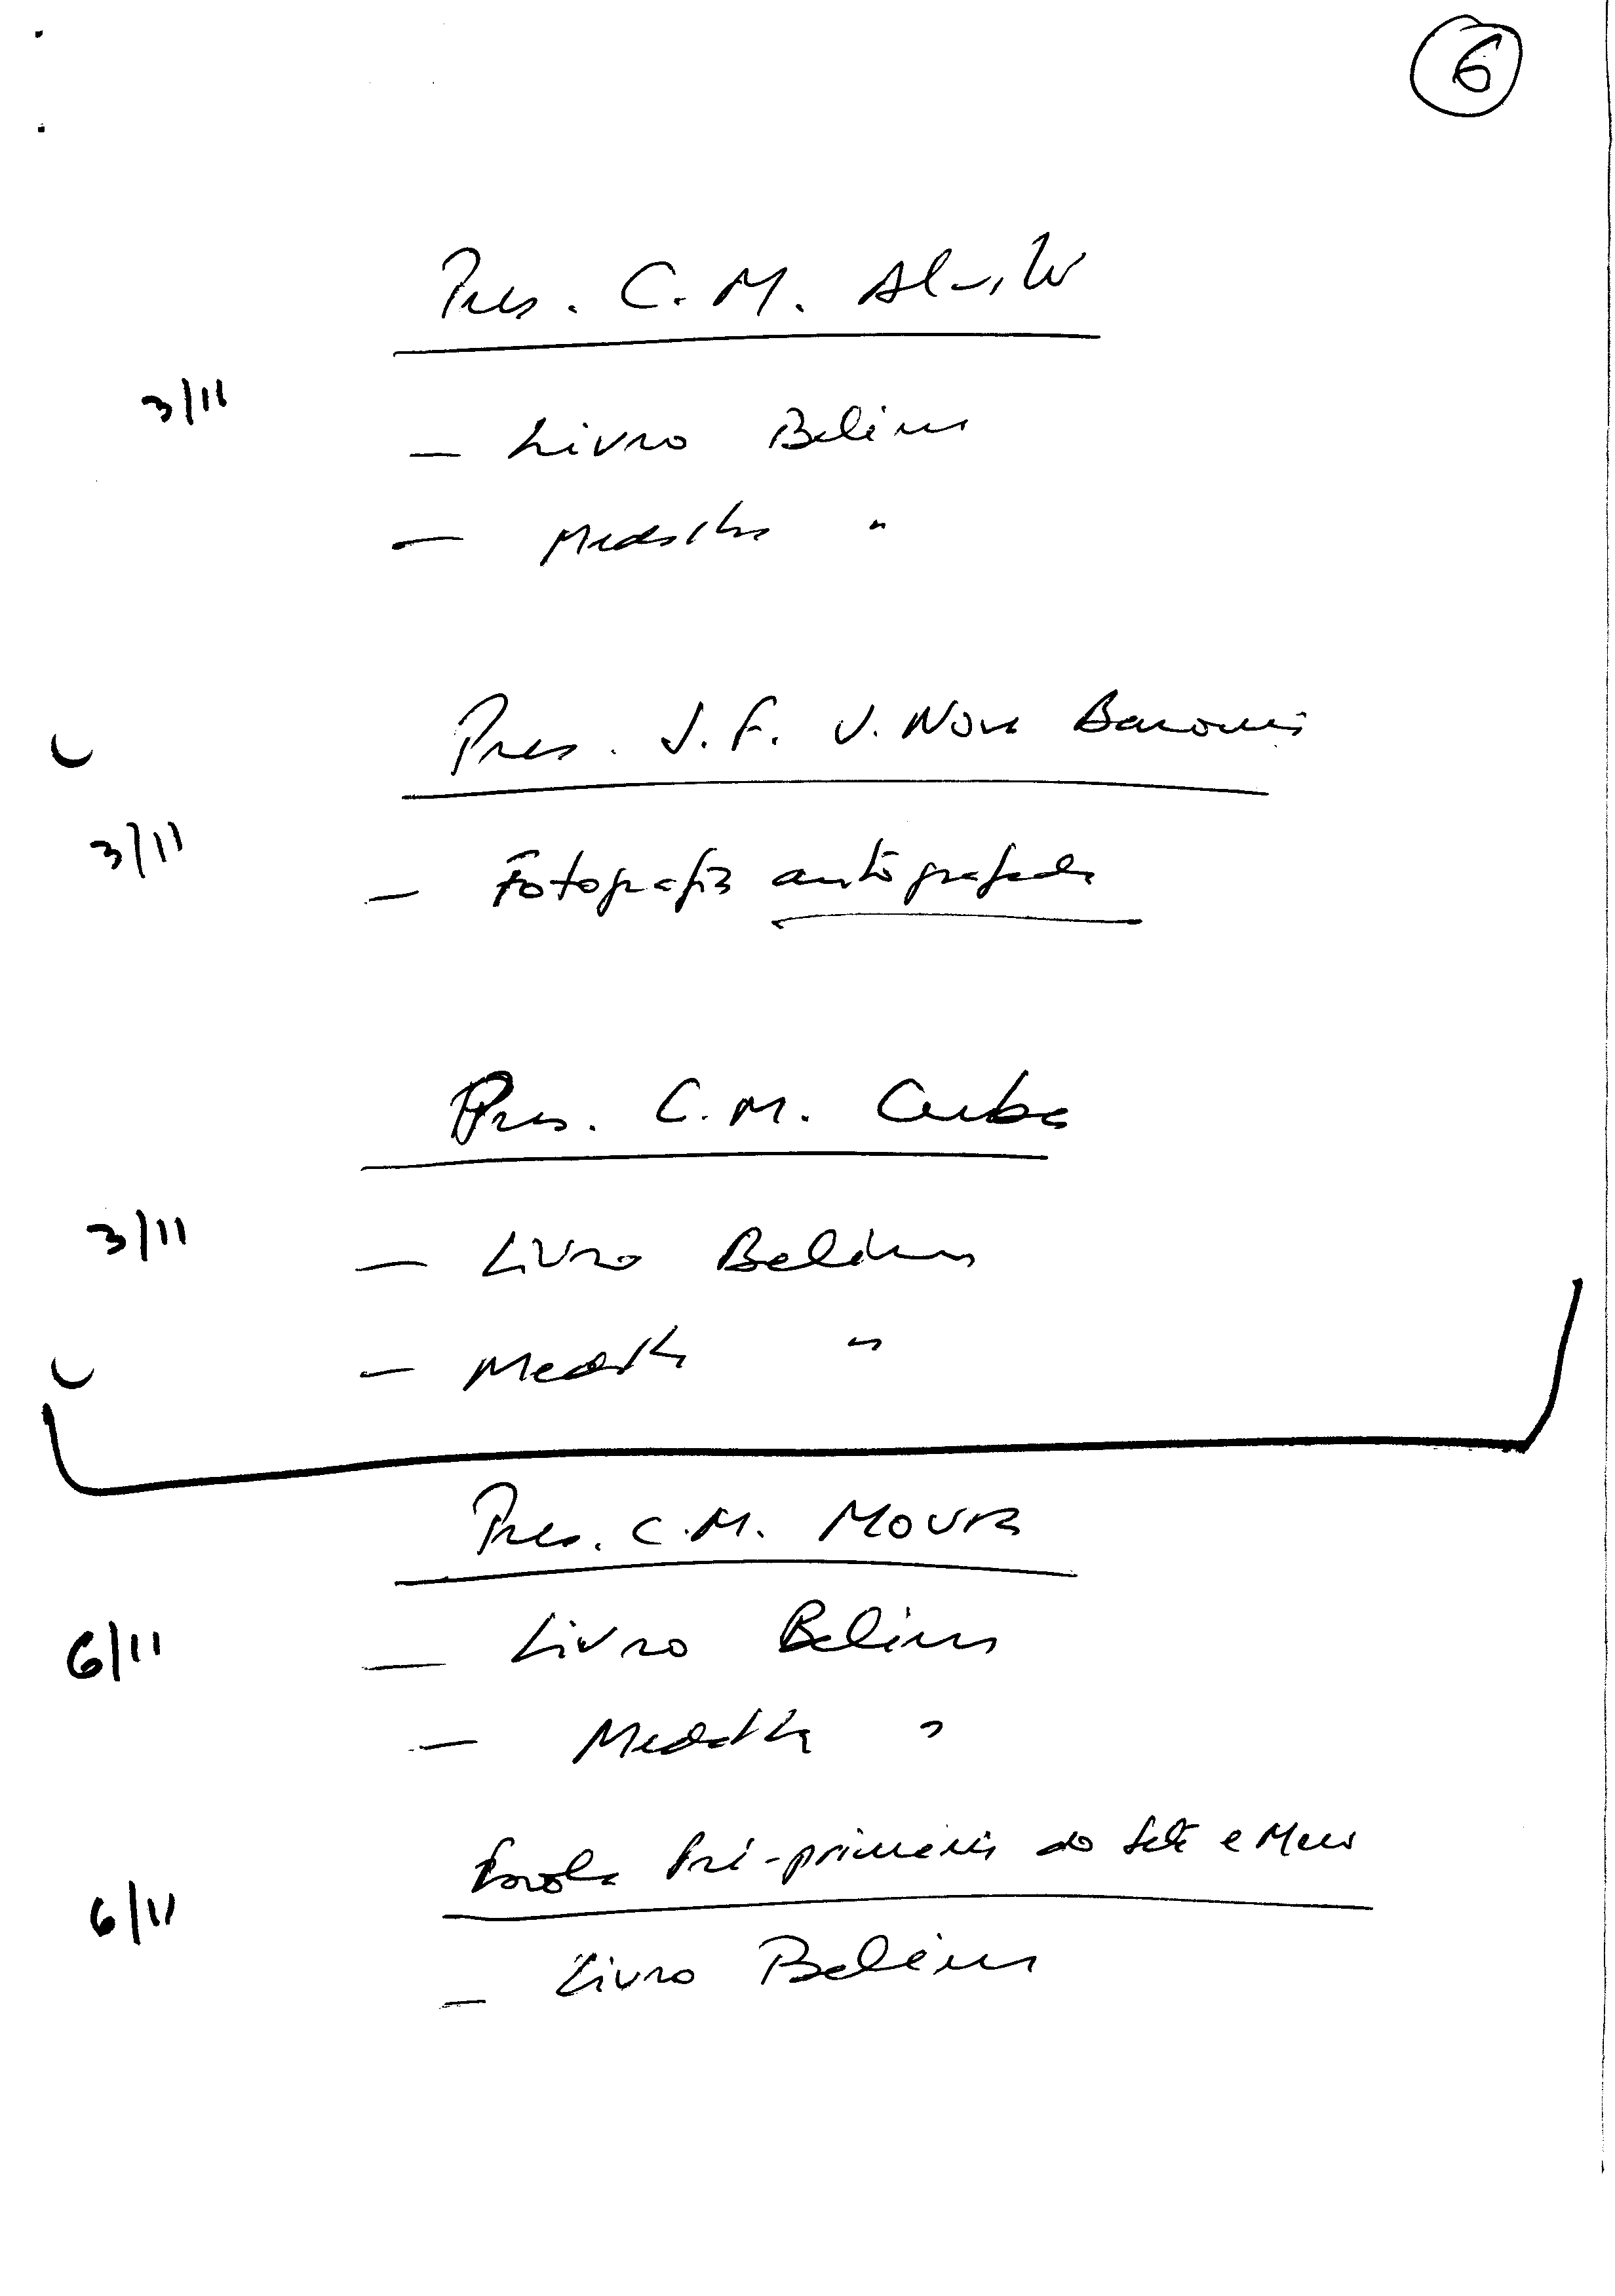 6
Pres. C. M. Alvito
3/11
— Livro Belém
— Medalha "
Pres. J. F. V. Nova Baronia
3/11
— Fotografia autografada
Pres. C. M. Cuba
3/11
— Livro Belém
— Medalha "
Pres. C. M. Moura
6/11
— Livro Belém
— Medalha "
Escola Pré-primária do Sete e Meio
6/11
— Livro Belém